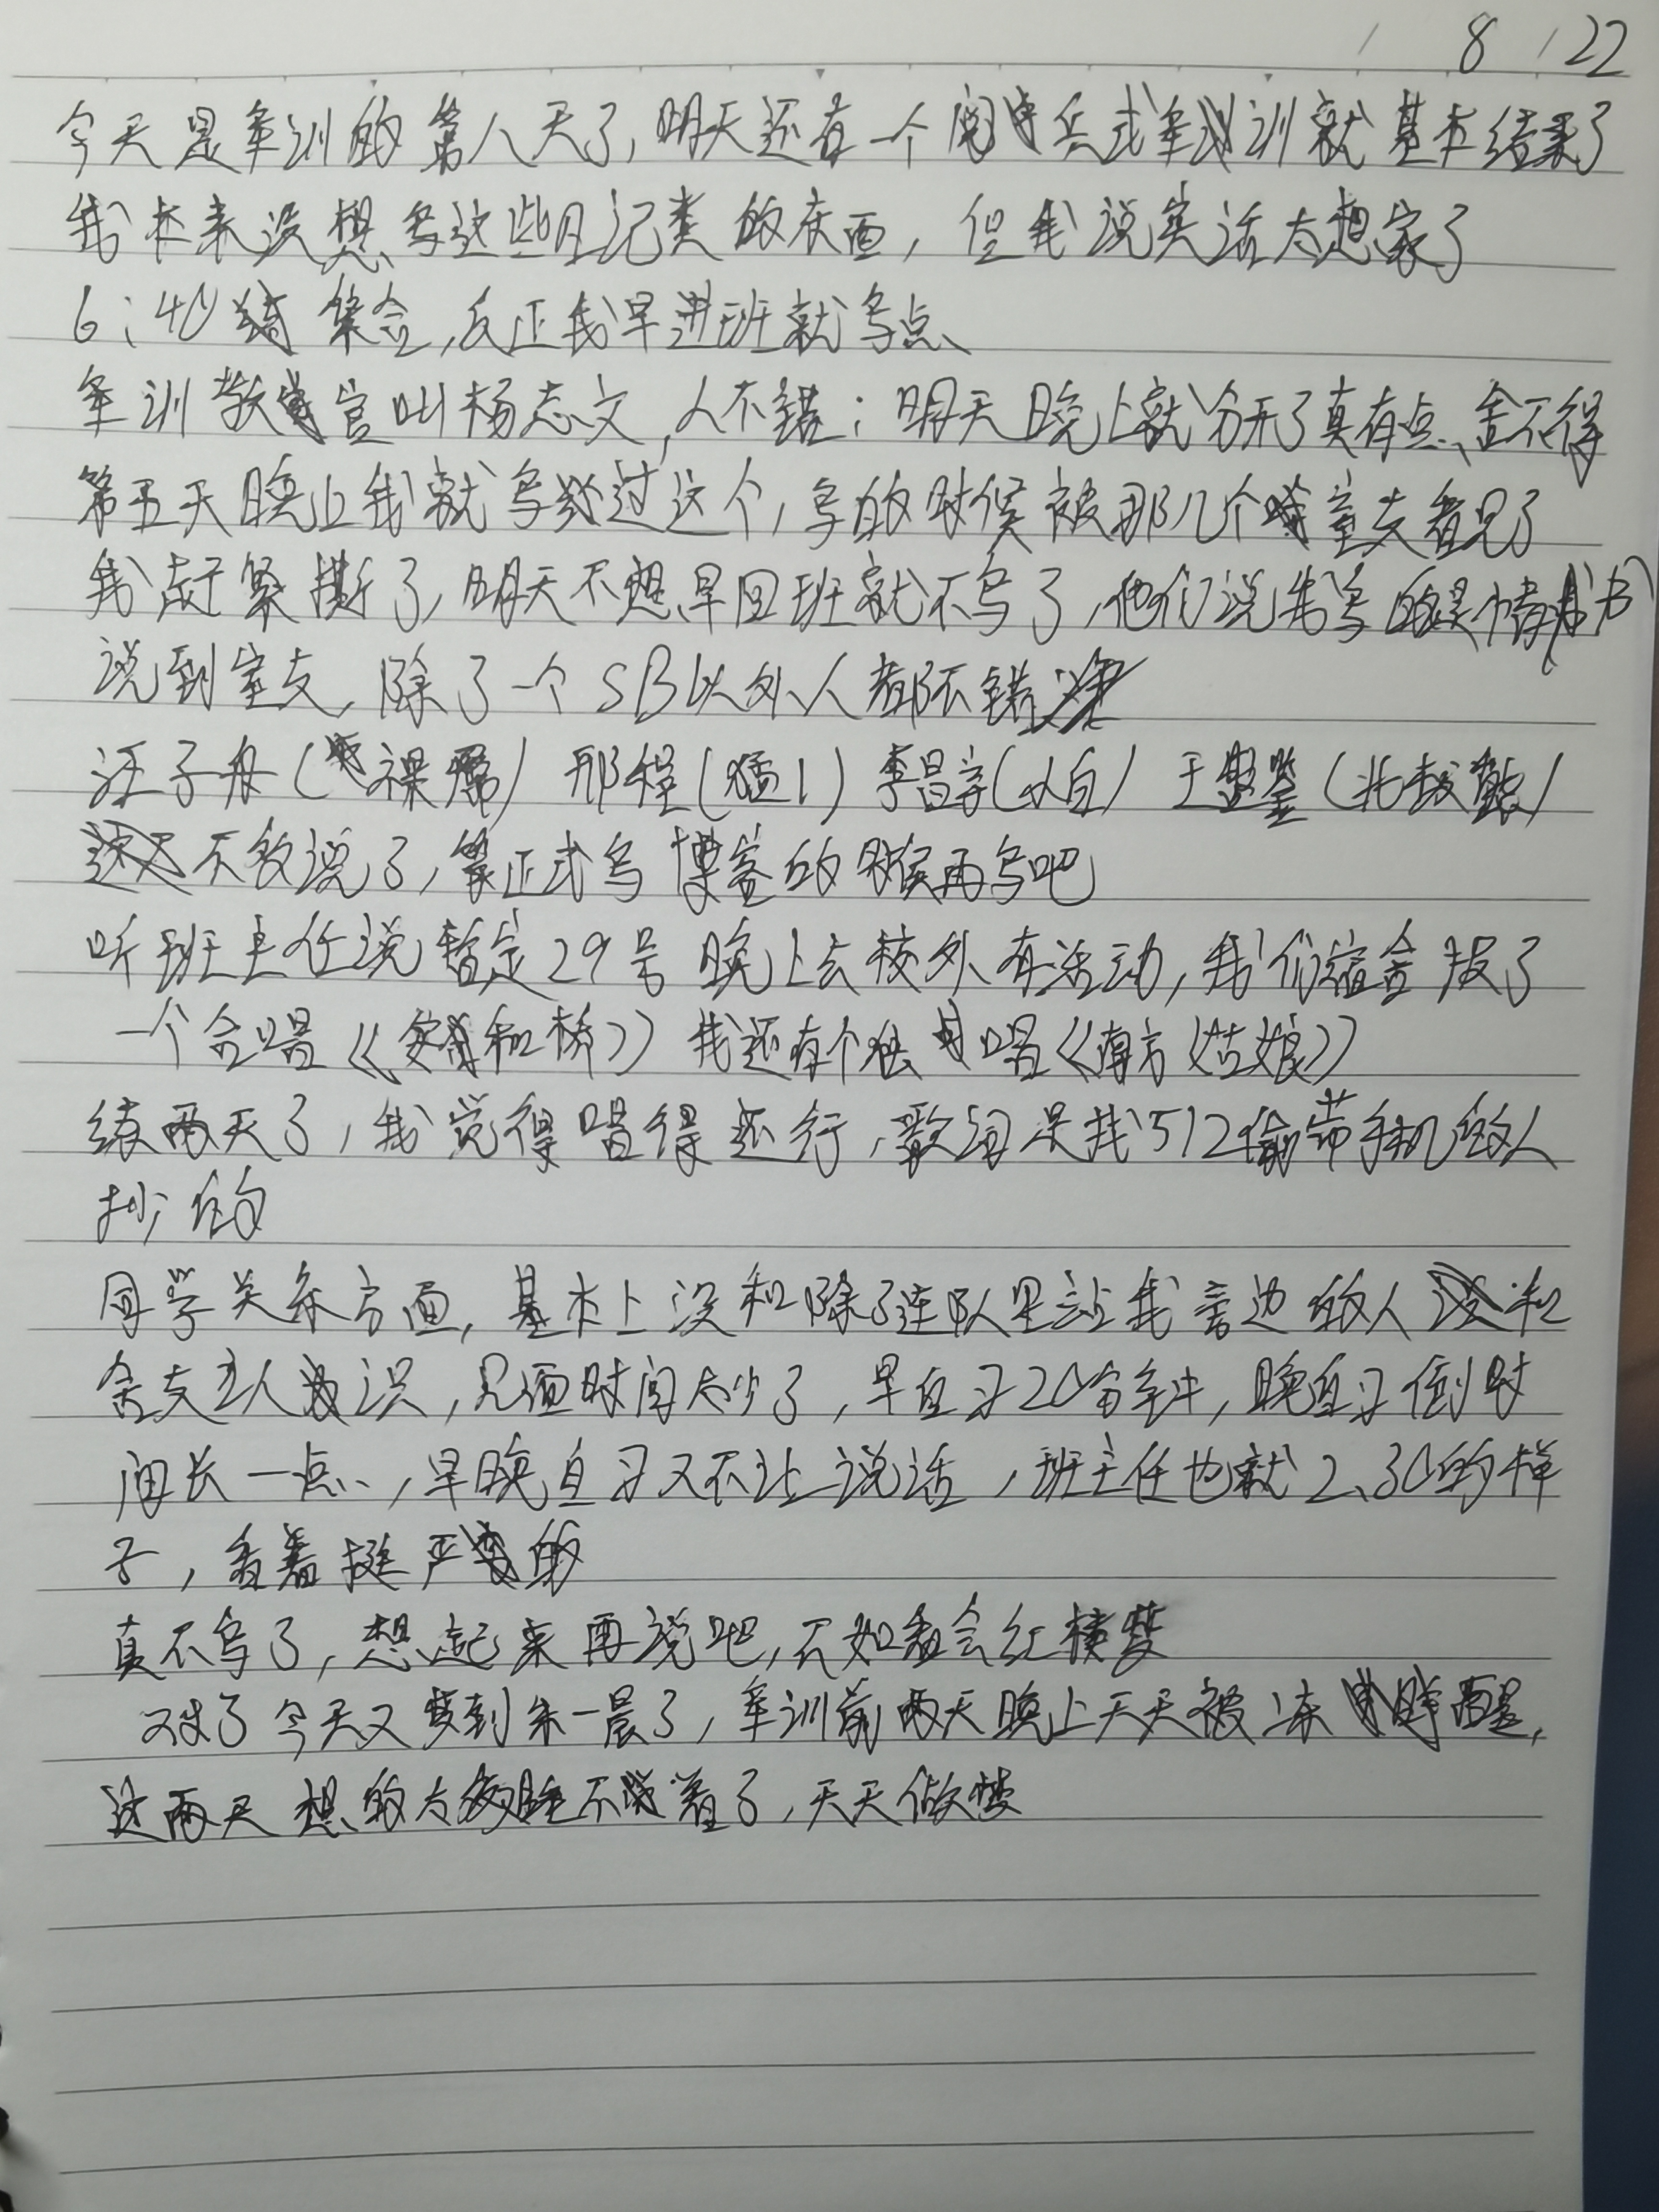 8/22
今天是军训的第八天了,明天还有一个阅兵式军训就基本结束了
我本来没想写这些日记类的东西,但我说实话太想家了
6:40 集合,反正我早进班就写点
军训教官叫杨志文,人不错;明天晚上就分开了真有点舍不得
第五天晚上我就写过这个,写的时候被那几个室友看见了
我赶紧撕了,明天不想早回班就不写了,他们说我写的是情书
说到室友,除了一个SB以外人都不错
汪子舟( ) 邢程(猛1) 李昌宇(小白) 王 (北极熊)
不敢说了,等正式写博客的时候再写吧
听班主任说暂定29号晚上去校外有活动,我们宿舍报了
一个合唱《安和桥》我还有个独唱《南方姑娘》
练两天了,我觉得唱得还行,歌词是找512偷带手机的人
抄的
同学关系方面,基本上没和除了连队里站我旁边的人和
舍友之人认识,见面时间太少了,早自习20分钟,晚自习倒时
间长一点,早晚自习又不让说话,班主任也就2、30的样
子,看着挺严的
真不写了,想起来再说吧,不如看会红楼梦
对了今天又梦到朱一晨了,军训前两天晚上天天被冻醒,
这两天想的太多睡不着了,天天做梦